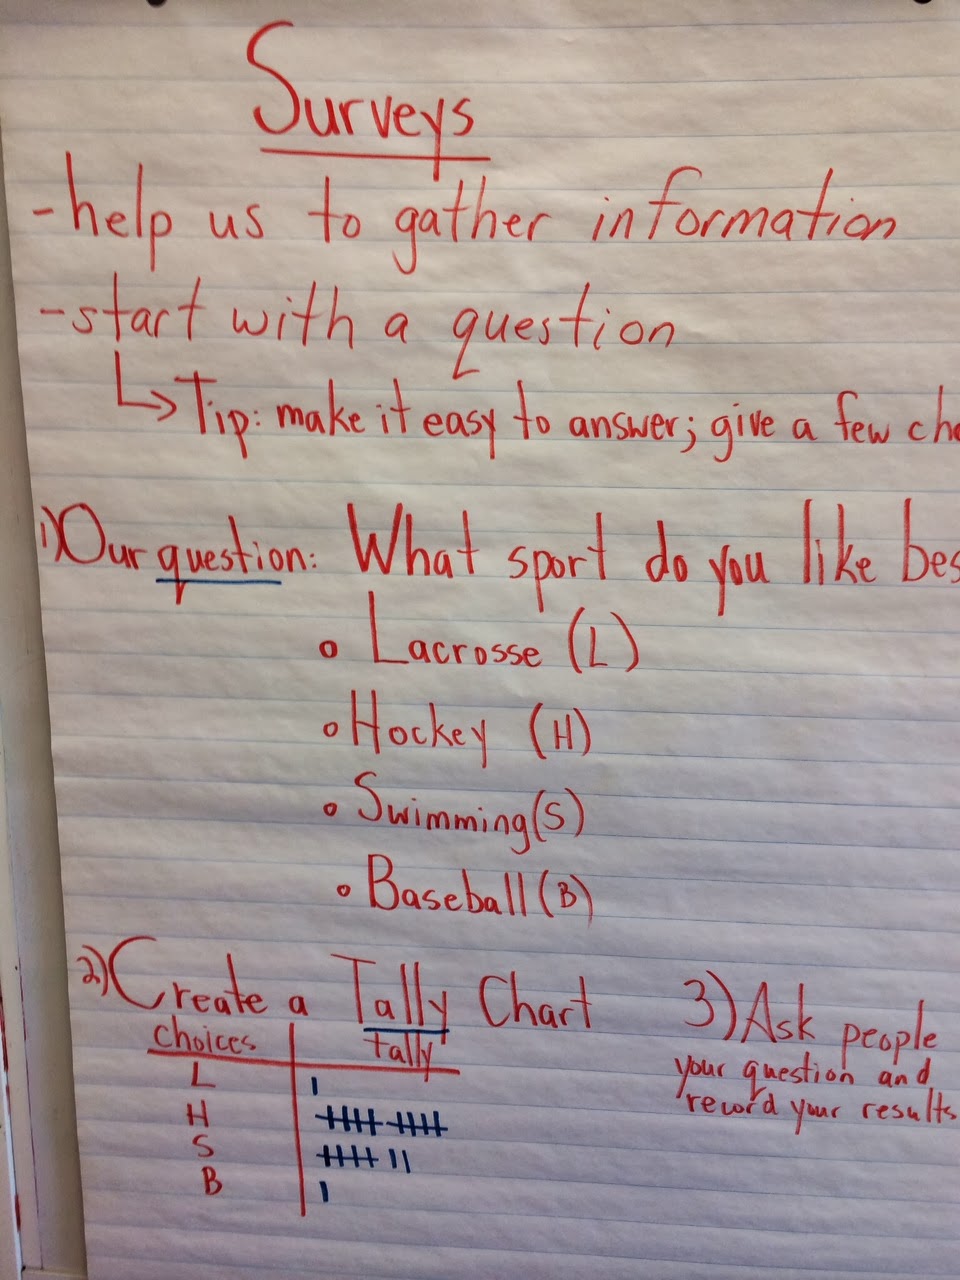 Surveys
-help us to gather information
-start with a question
↳Tip: make it easy to answer; give a few
1) Our question: What sport do you like
o Lacrosse (L)
o Hockey (H)
o Swimming (S)
o Baseball (B)
2) Create a Tally Chart
Choices tally
L
H
S
B
3) Ask people
your question and
record your results